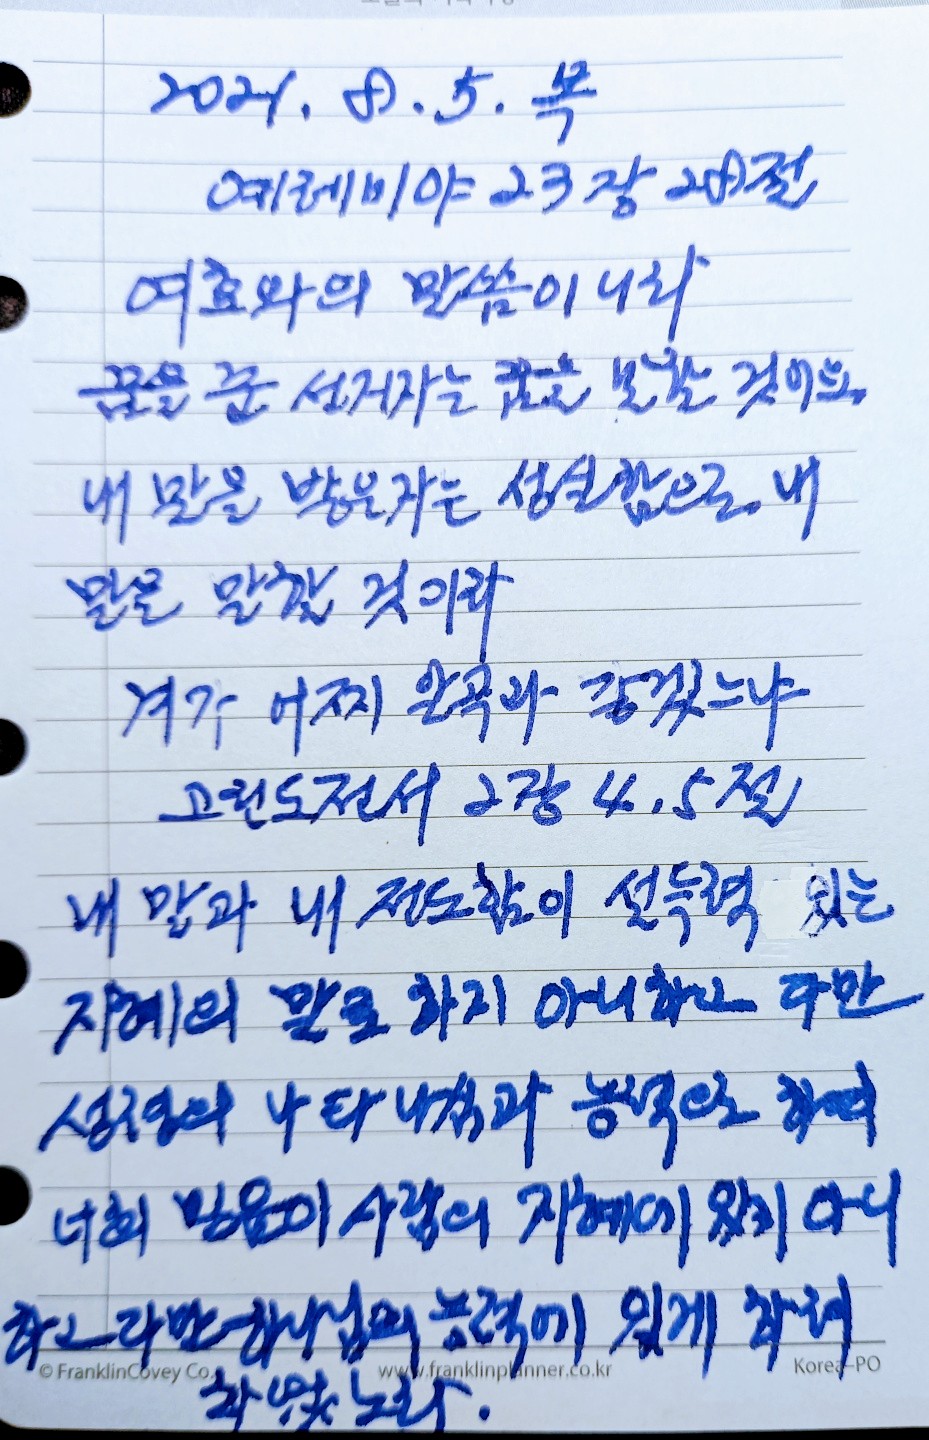 2021. 8. 5. 목
예레미야 23장 28절
여호와의 말씀이니라
꿈을 꾼 선지자는 꿈을 말할 것이요
내 말을 받은 자는 성실함으로 내
말을 말할 것이라
겨가 어찌 알곡과 같겠느냐
고린도전서 2장 4.5절
내 말과 내 전도함이 설득력 있는
지혜의 말로 하지 아니하고 다만
성령의 나타나심과 능력으로 하여
너희 믿음이 사람의 지혜에 있지 아니
하고 다만 하나님의 능력에 있게 하려
하였노라.
© FranklinCovey Co. www.franklinplanner.co.kr Korea-PO